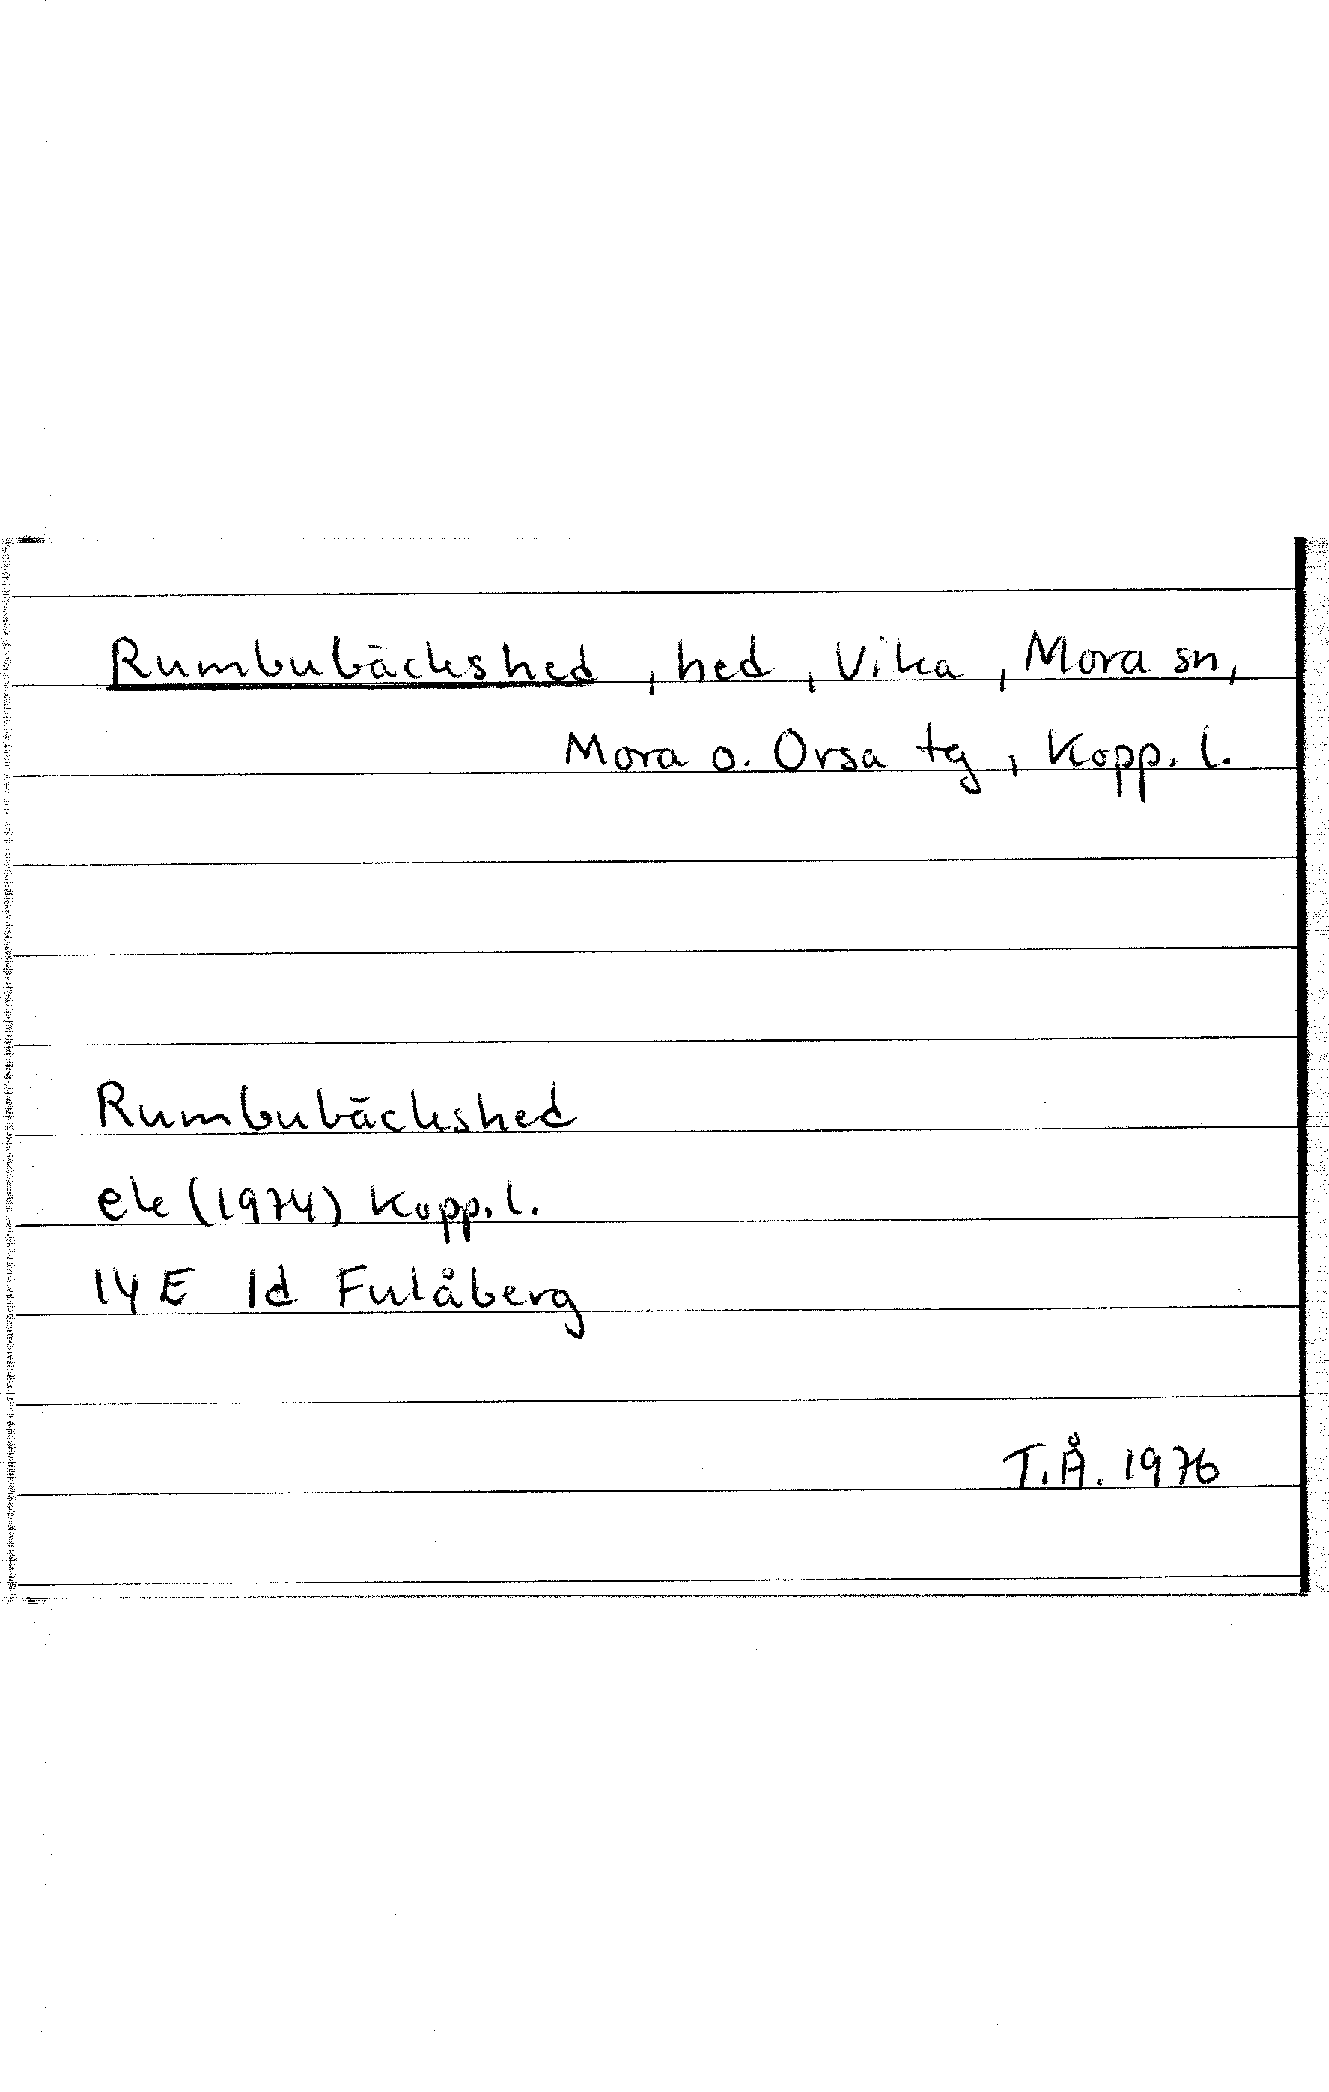 Rumbubäckshed, hed, Vika, Mora sn,
Mora o. Orsa tg, Kopp. l.
Rumbubäckshed
ek (1974) Kopp. l.
14 E 1d Fulåberg
T.Å. 1976